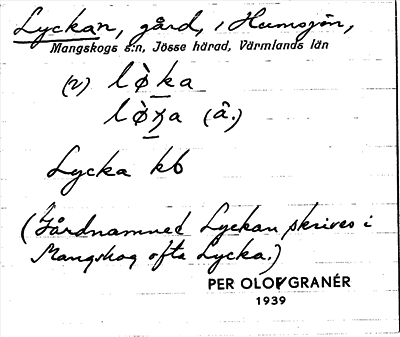 Lyckan, gård, i Humsjön,
Mangskogs s:n, Jösse härad, Värmlands län
(v) lø̀ka
lø̀χa (â.)
Lycka kb
(Gårdnamnet Lyckan skrives i
Mangskog ofta Lycka.)
PER OLOF GRANÉR
1939